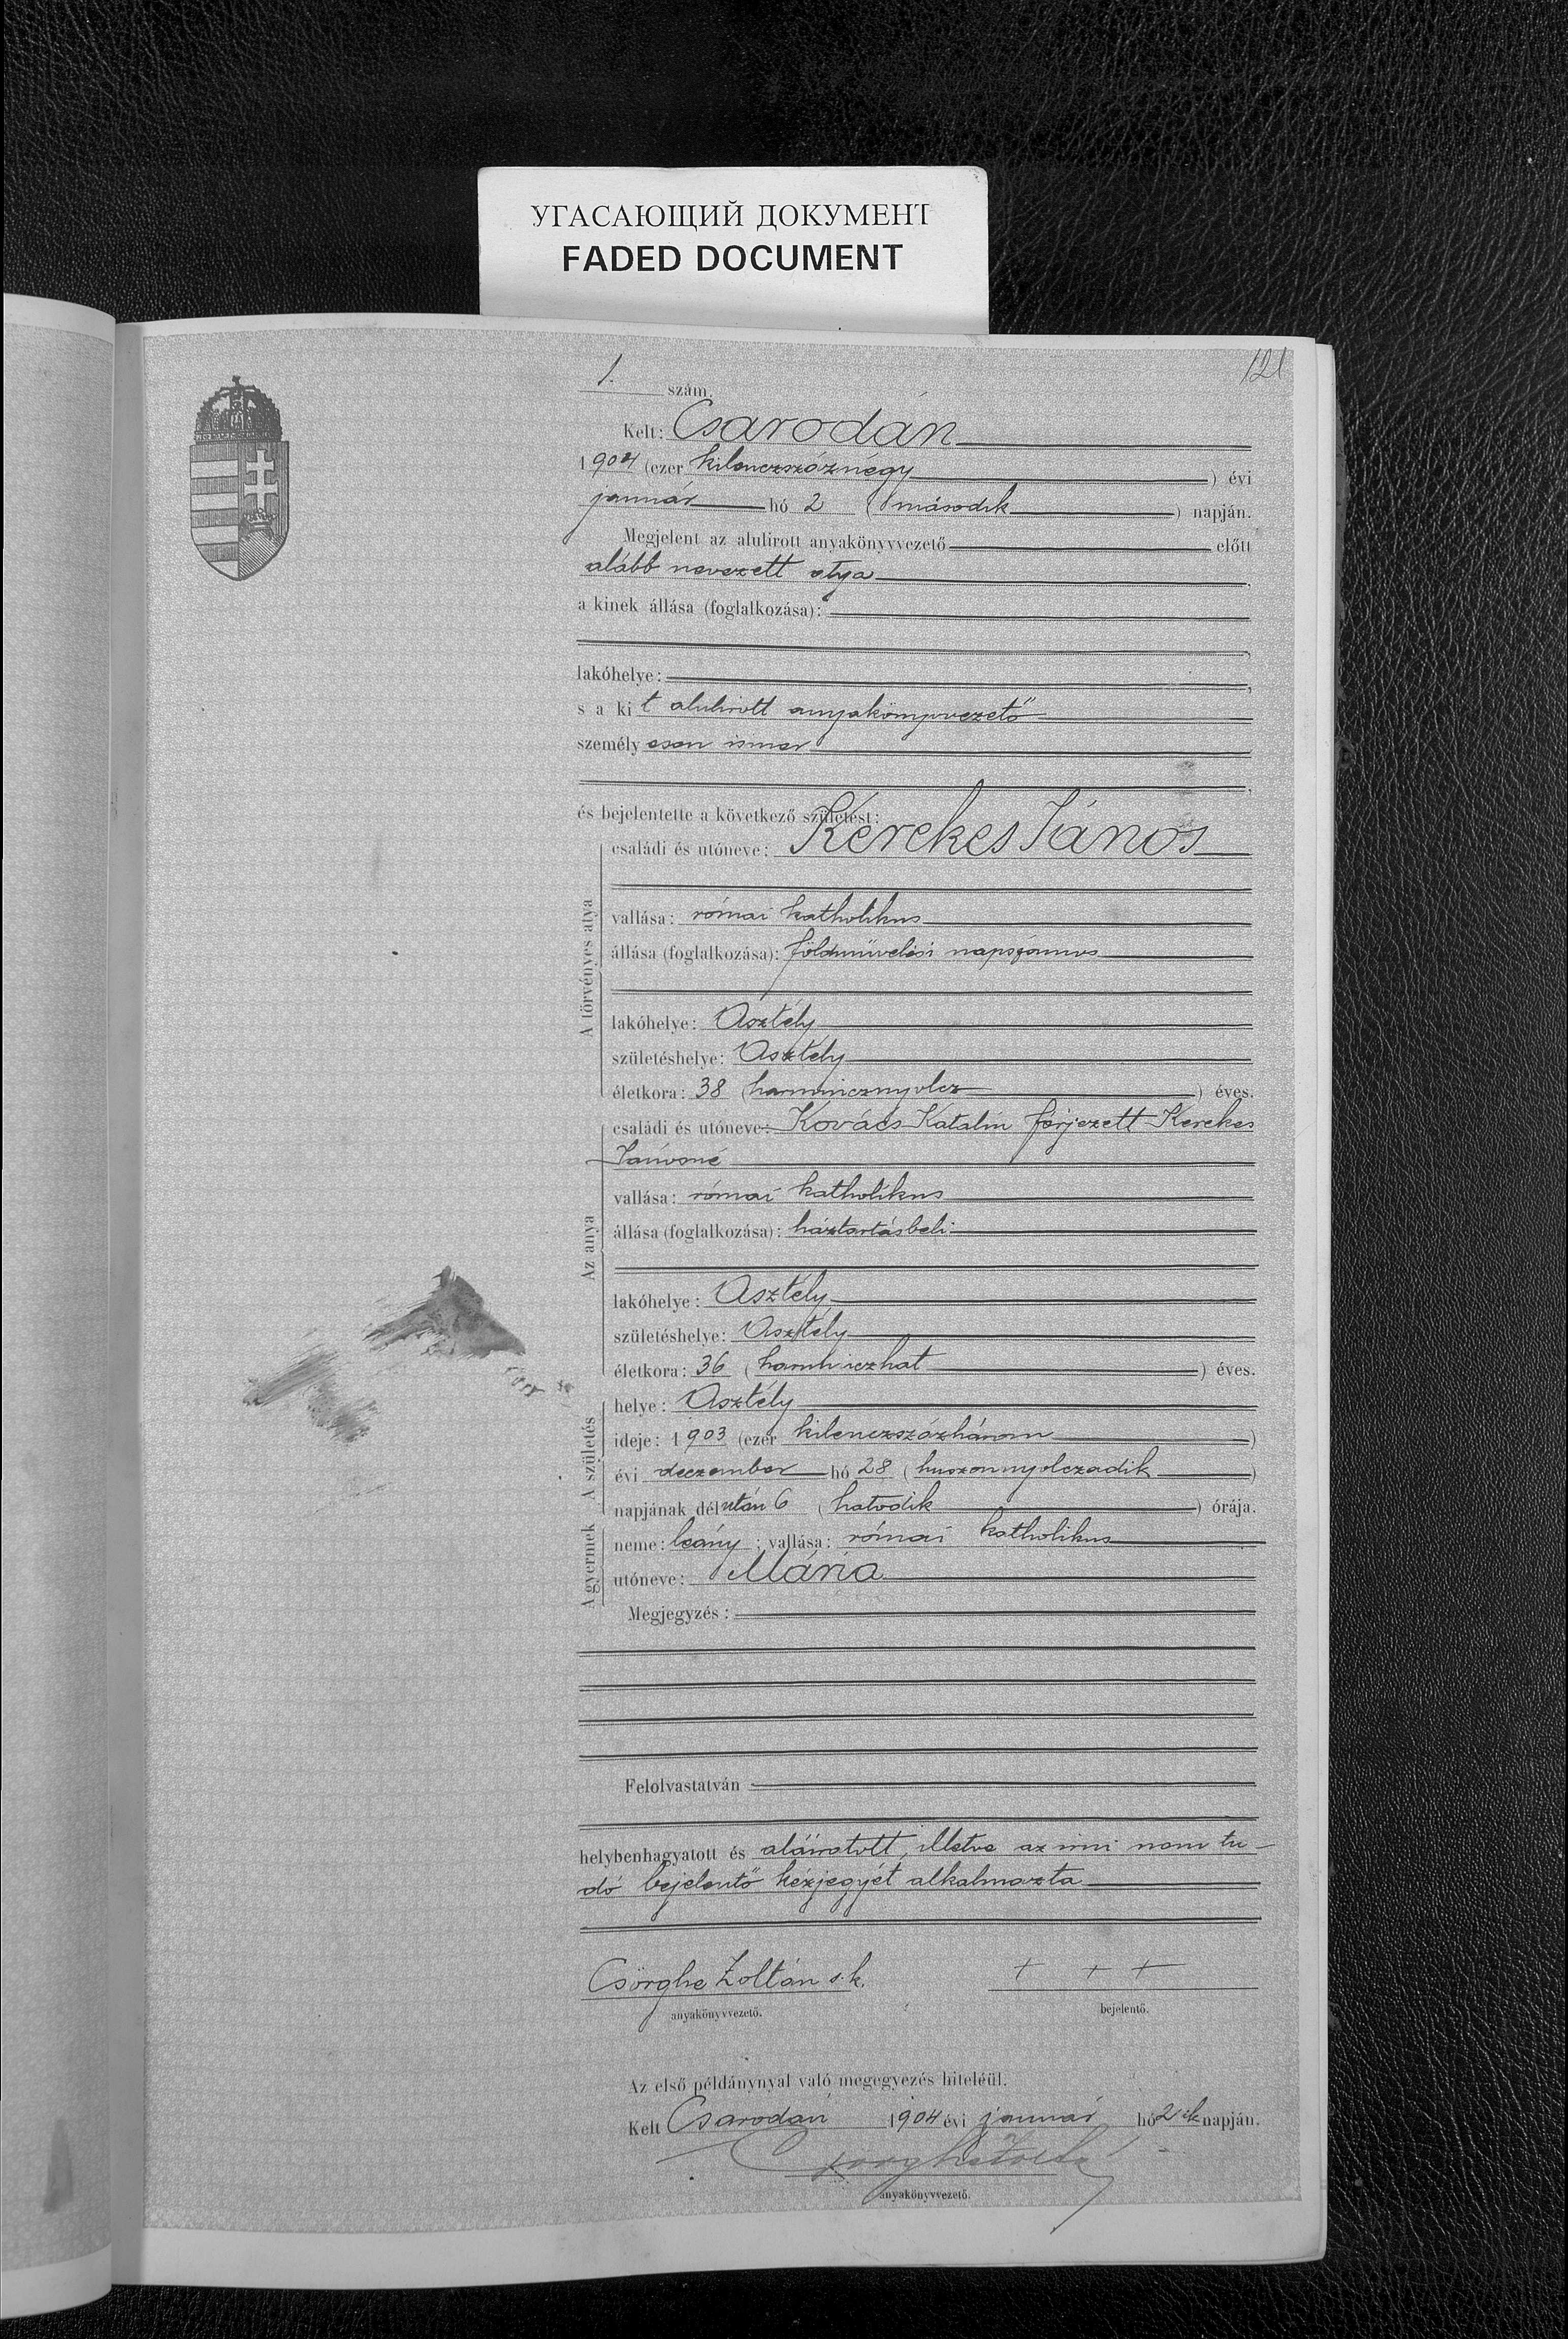 УГАСАЮЩИЙ ДОКУМЕНТ
FADED DOCUMENT
121
1. szám.
Kelt: Csarodán
1904 (ezer kilenczszáznégy) évi
január hó 2 (második) napján.
Megjelent az alulirott anyakönyvvezető előtt
alább nevezett atya,
a kinek állása (foglalkozása):
lakóhelye:
s a kit alulirott anyakönyvvezető
személyesen ismer,
és bejelentette a következő születést:
A törvényes atya
családi és utóneve: Kerekes János
vallása: római katholikus
állása (foglalkozása): földmüvelési napszámos
lakóhelye: Asztély
születéshelye: Asztély
életkora: 38 (harmincznyolcz) éves.
Az anya
családi és utóneve: Kovács Katalin férjezett Kerekes
Jánosné
vallása: római katholikus
állása (foglalkozása): háztartásbeli
lakóhelye: Asztély
születéshelye: Asztély
életkora: 36 (harminczhat) éves.
A születés
helye: Asztély
ideje: 1903 (ezer kilenczszázhárom)
évi deczember hó 28 (huszonnyolczadik)
napjának délután 6 (hatodik) órája.
A gyermek
neme: leány; vallása: római katholikus
utóneve: Mária
Megjegyzés:
Felolvastatván
helybenhagyatott és aláiratott, illetve az irni nem tu-
dó bejelentő kézjegyét alkalmazta
Csörghe Zoltán s.k. + + +
anyakönyvvezető. bejelentő.
Az első példánynyal való megegyezés hiteléül.
Kelt Csarodán 1904 évi január hó 2ik napján.
Csörghe Zoltán
anyakönyvvezető.